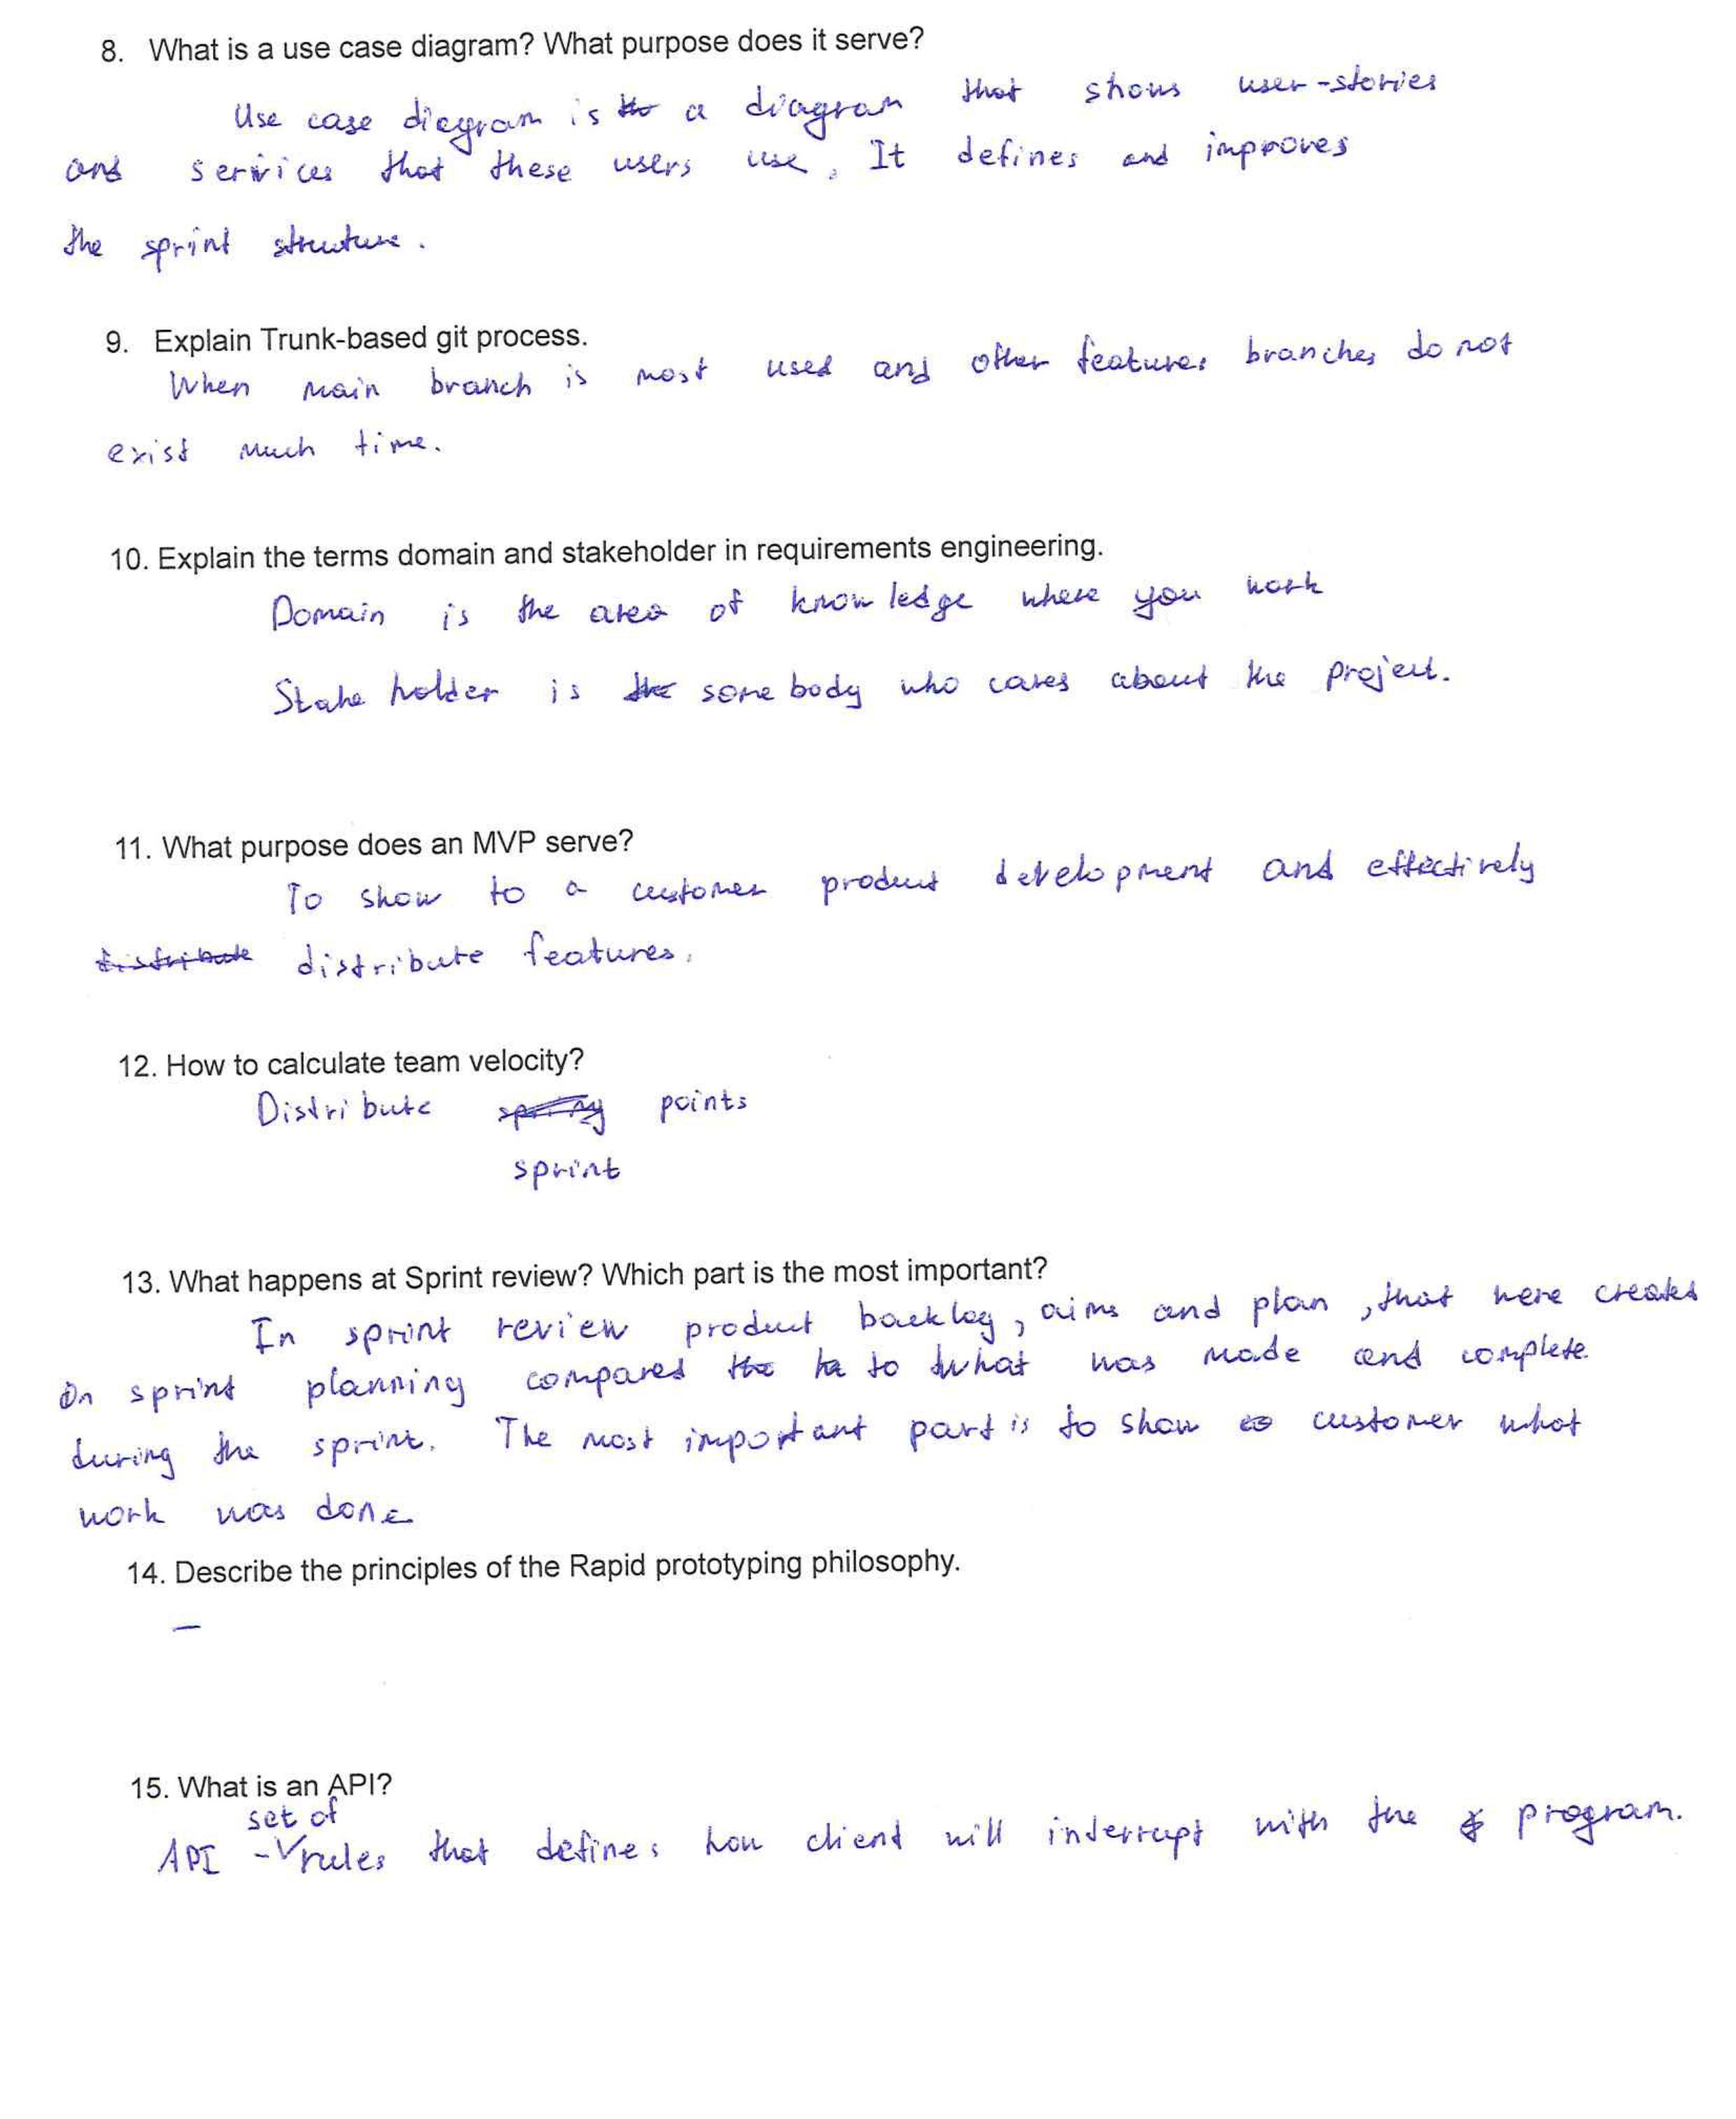 8. What is a use case diagram? What purpose does it serve?
Use case diegram is a diagram that shows user-stories
and serivices that these users use. It defines and improves
the sprint structure.
9. Explain Trunk-based git process.
When main branch is most used and other features branches do not
exist much time.
10. Explain the terms domain and stakeholder in requirements engineering.
Domain is the area of knowledge where you work
Stakeholder is somebody who cares about the project.
11. What purpose does an MVP serve?
To show to a customer product development and effectively
distribute features.
12. How to calculate team velocity?
Distribute points
sprint
13. What happens at Sprint review? Which part is the most important?
In sprint review product backlog, aims and plan, that were created
on sprint planning compared to what was made and complete
during the sprint. The most important part is to show customer what
work was done
14. Describe the principles of the Rapid prototyping philosophy.
—
15. What is an API?
set of
API - rules that defines how client will interrupt with the program.